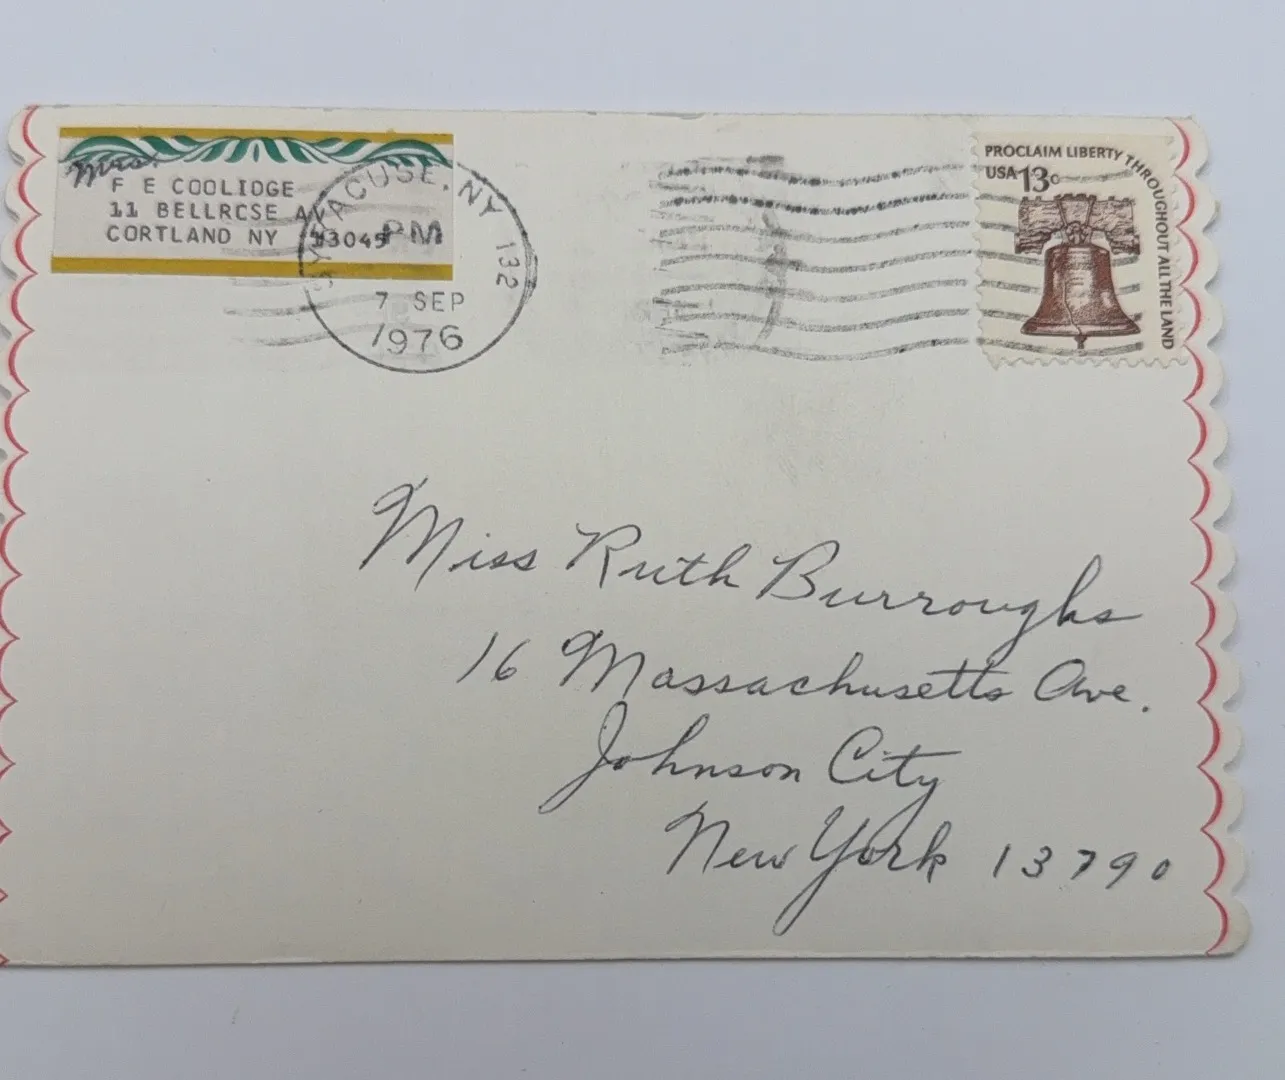 Mrs.
F E COOLIDGE
11 BELLRCSE AV
CORTLAND NY 13045
SYRACUSE, NY 132
PM
7 SEP
1976
PROCLAIM LIBERTY THROUGHOUT ALL THE LAND
USA 13c
Miss Ruth Burroughs
16 Massachusetts Ave.
Johnson City
New York 13790